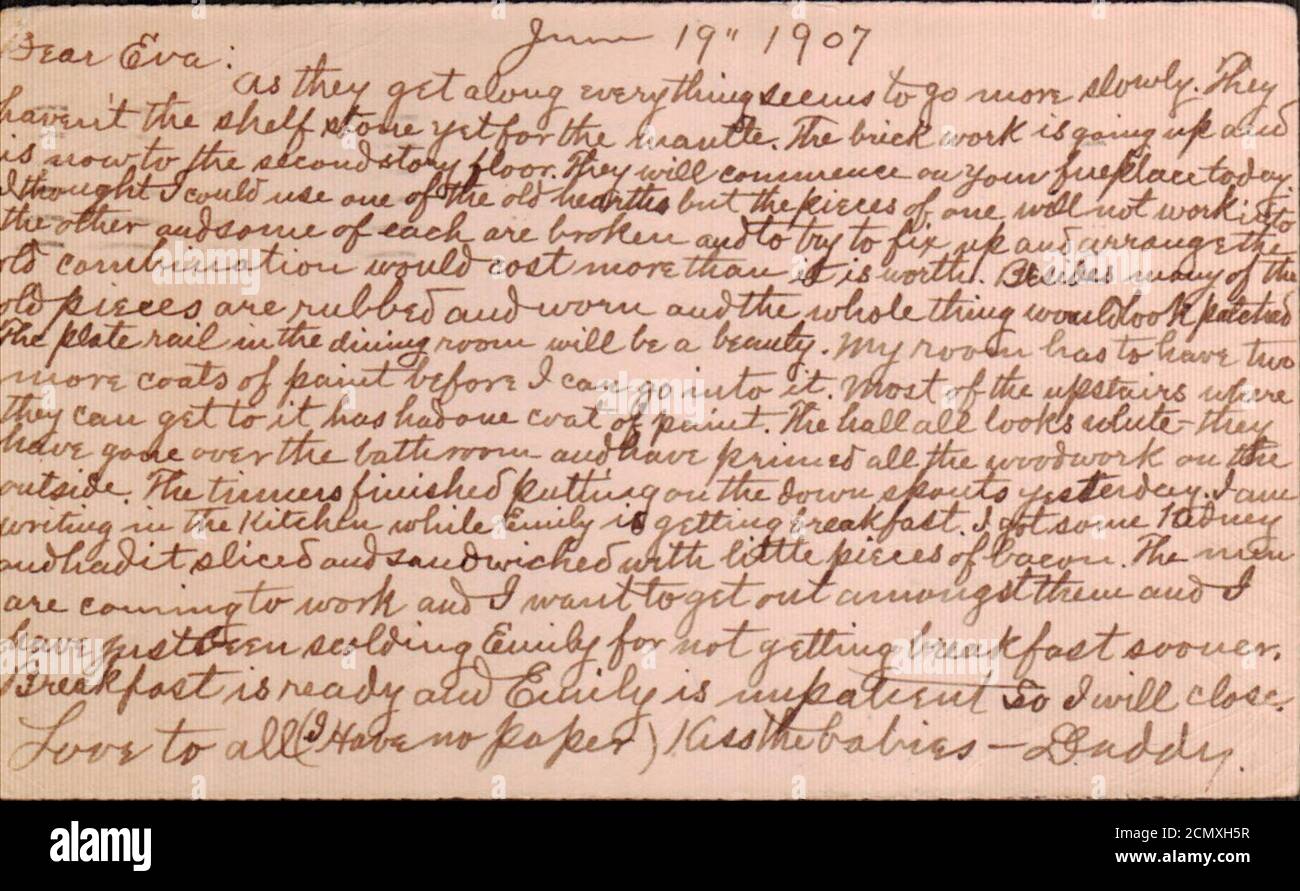 June 19" 1907
Dear Eva:
As they get along everything seems to go more slowly. They
haven't the shelf stone yet for the mantle. The brick work is going up and
is now to the second story floor. They will commence on your fireplace today.
I thought I could use one of the old hearths but the pieces of one will not work into
the other and some of each are broken and to try to fix up and arrange the
old combination would cost more than it is worth. Besides many of the
old pieces are rubbed and worn and the whole thing would look patched
The plate rail in the dining room will be a beauty. My room has to have two
more coats of paint before I can go into it. Most of the upstairs where
they can get to it has had one coat of paint. The hall all looks white - they
have gone over the bathroom and have primed all the woodwork on the
outside. The tinners finished putting on the down spouts yesterday. I am
writing in the Kitchen while Emily is getting breakfast. I got some Kidney
and had it sliced and sandwiched with little pieces of bacon. The men
are coming to work and I want to get out amongst them and I
have just been scolding Emily for not getting breakfast sooner.
Breakfast is ready and Emily is impatient so I will close.
Love to all (I Have no paper) Kiss the babies - Daddy.
alamy
Image ID: 2CMXH5R
www.alamy.com